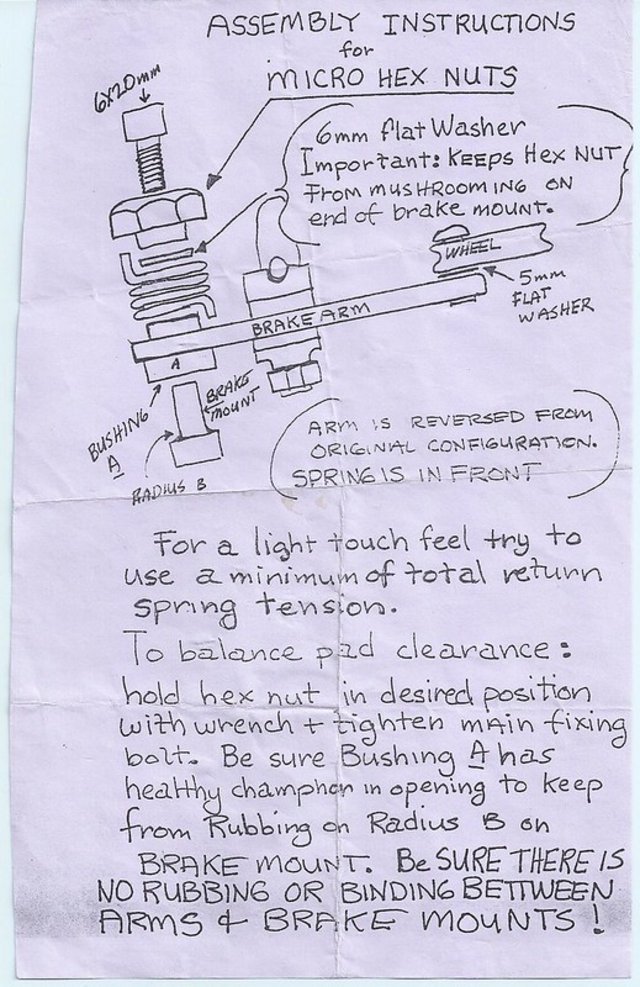 ASSEMBLY INSTRUCTIONS
for
MICRO HEX NUTS
6X20mm
6mm flat Washer
Important: KEEPS Hex NUT
From MUSHROOMING ON
end of brake mount.
WHEEL
5mm
FLAT
WASHER
BRAKE ARM
A
BRAKE
MOUNT
BUSHING
A
RADIUS B
ARM IS REVERSED FROM
ORIGINAL CONFIGURATION.
SPRING IS IN FRONT
For a light touch feel try to
use a minimum of total return
spring tension.
To balance pad clearance:
hold hex nut in desired position
with wrench + tighten main fixing
bolt. Be sure Bushing A has
healthy champher in opening to keep
from Rubbing on Radius B on
BRAKE MOUNT. Be SURE THERE IS
NO RUBBING OR BINDING BETTWEEN
ARMS & BRAKE MOUNTS!